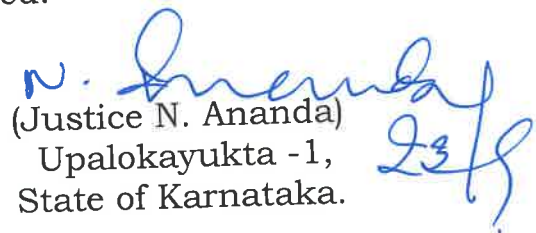 N. Ananda
(Justice N. Ananda)
Upalokayukta -1,
23/9
State of Karnataka.